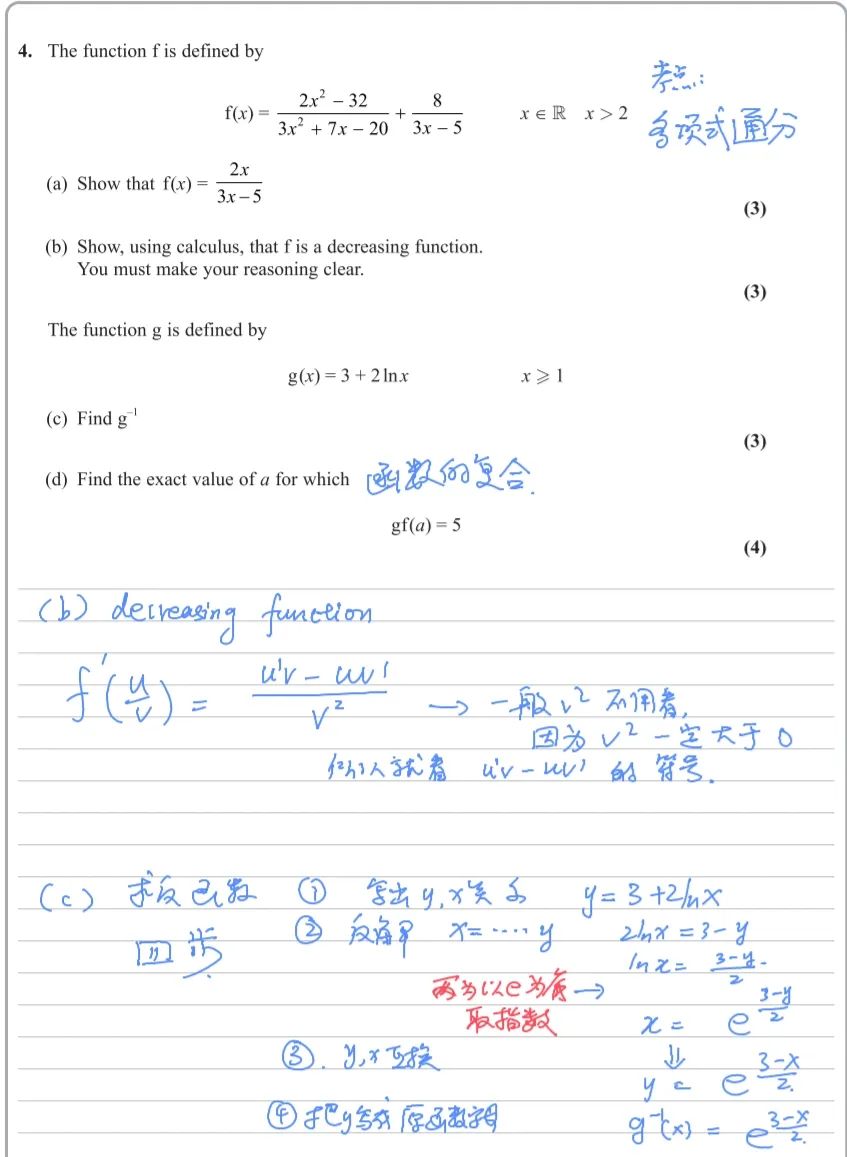 4. The function f is defined by
f(x) = (2x² − 32)/(3x² + 7x − 20) + 8/(3x − 5) x ∈ ℝ x > 2
考点:
多项式通分
(a) Show that f(x) = 2x/(3x − 5)
(3)
(b) Show, using calculus, that f is a decreasing function.
You must make your reasoning clear.
(3)
The function g is defined by
g(x) = 3 + 2 ln x x ⩾ 1
(c) Find g⁻¹
(3)
(d) Find the exact value of a for which 函数的复合.
gf(a) = 5
(4)
(b) decreasing function
f'(u/v) = (u'v − uv')/v² → 一般 v² 不用看,
因为 v² 一定大于 0
们人就看 u'v − uv' 的符号.
(c) 求反函数 ① 写出 y, x 关系 y = 3 + 2lnx
四步 ② 反解 x = ····· y 2lnx = 3 − y
lnx = (3−y)/2
两边以e为底 →
取指数 x = e^((3−y)/2)
③. y, x 互换 ⇓
y = e^((3−x)/2)
④ 把y写成原函数 g⁻¹(x) = e^((3−x)/2)